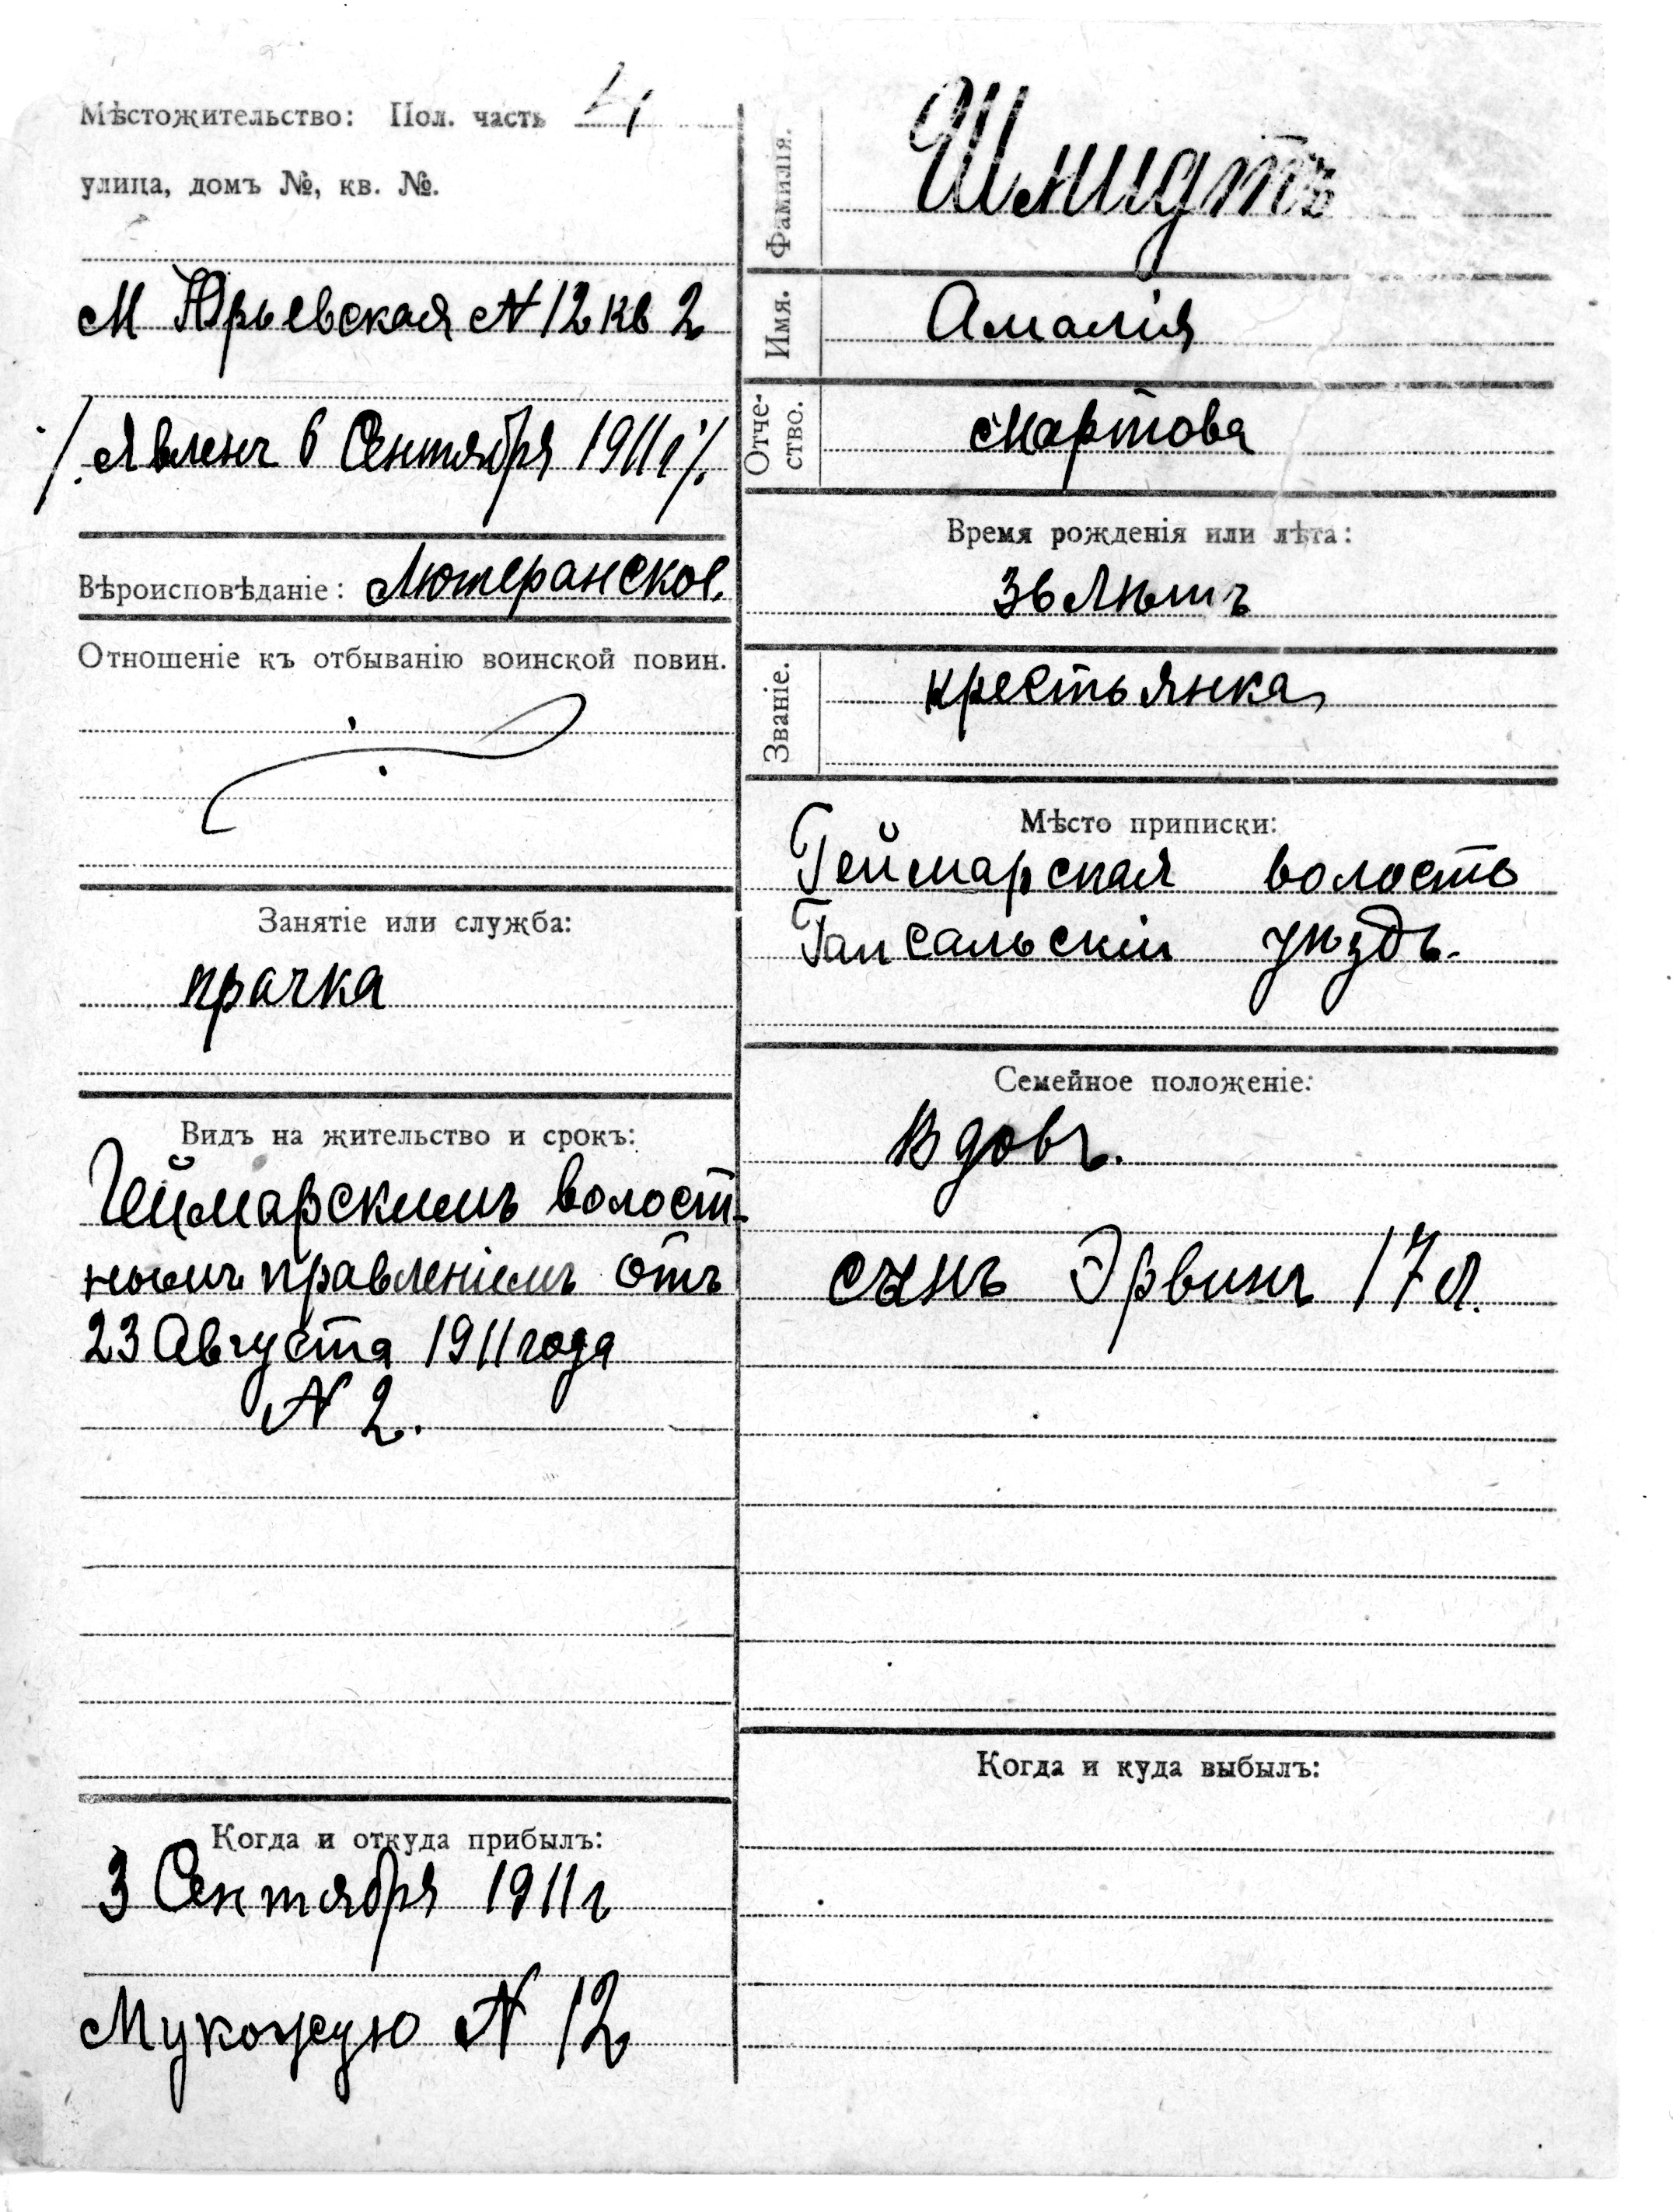 Мѣстожительство: Пол. часть 4
улица, домъ №, кв. №.
М Юрьевская № 12 кв 2
/. Явленъ 6 Сентября 1911 г /.
Вѣроисповѣданіе: Лютеранское.
Отношеніе къ отбыванію воинской повин.
Занятіе или служба:
прачка
Видъ на жительство и срокъ:
Геймарскимъ волост-
нымъ правленіемъ отъ
23 Августа 1911 года
№ 2.
Когда и откуда прибылъ:
3 Сентября 1911 г
№ 12
Фамилія. Шмидтъ
Имя. Амалія
Отче-
ство. Мартова
Время рожденія или лѣта:
36 Лѣтъ
Званіе. крестьянка
Мѣсто приписки:
Геймарская волость
Гапсальскій уѣздъ.
Семейное положеніе:
Вдовъ.
сынъ Эрвинъ 17 л.
Когда и куда выбылъ: